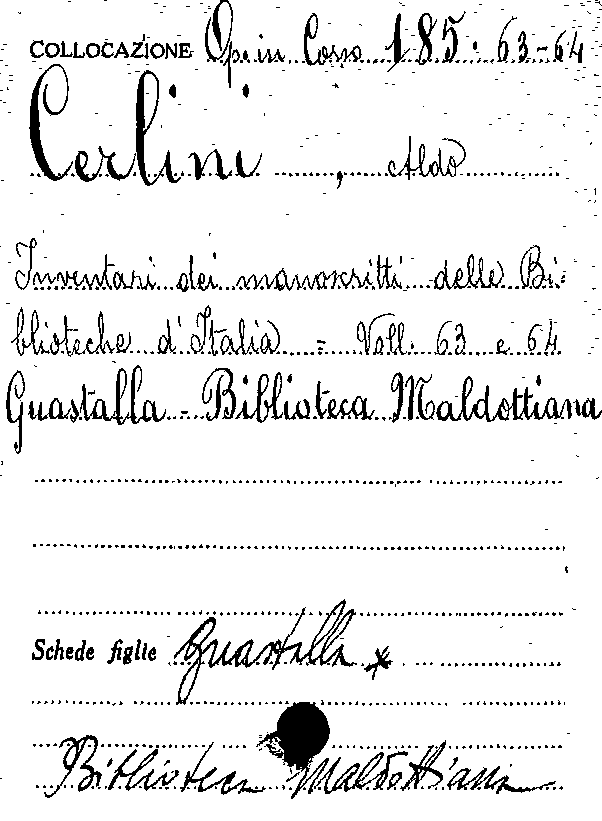 COLLOCAZIONE Op. in Corso 185. 63-64
Cerlini, Aldo
Inventari dei manoscritti delle Bi-
blioteche d'Italia = Voll. 63 e 64
Guastalla - Biblioteca Maldottiana
Schede figlie Guastalla x
Biblioteca Maldottiana